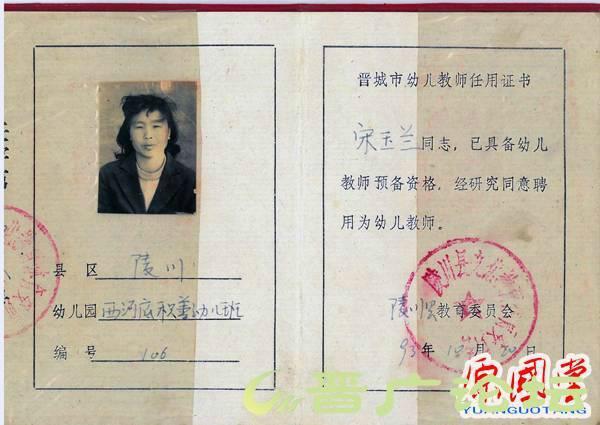 县区 陵川
幼儿园 西河底积善幼儿班
编号 106
晋城市幼儿教师任用证书
宋玉兰同志，已具备幼儿
教师预备资格，经研究同意聘
用为幼儿教师。
陵川县教育委员会
晋广论坛
YUANGUOTANG